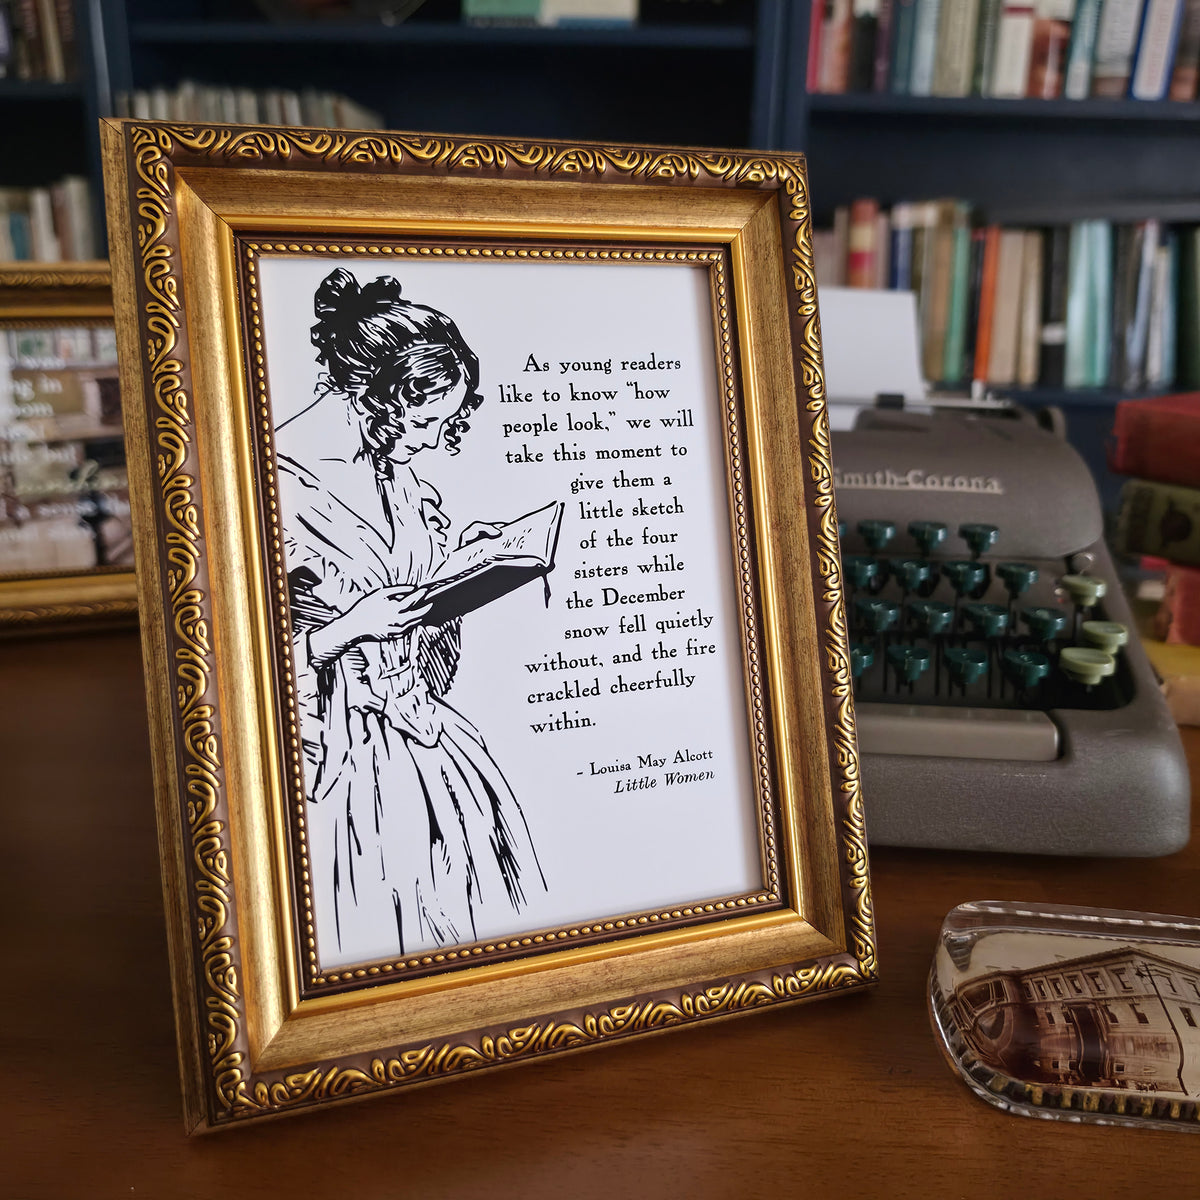 As young readers
like to know “how
people look,” we will
take this moment to
give them a
little sketch
of the four
sisters while
the December
snow fell quietly
without, and the fire
crackled cheerfully
within.
- Louisa May Alcott
Little Women
Smith-Corona
was
in